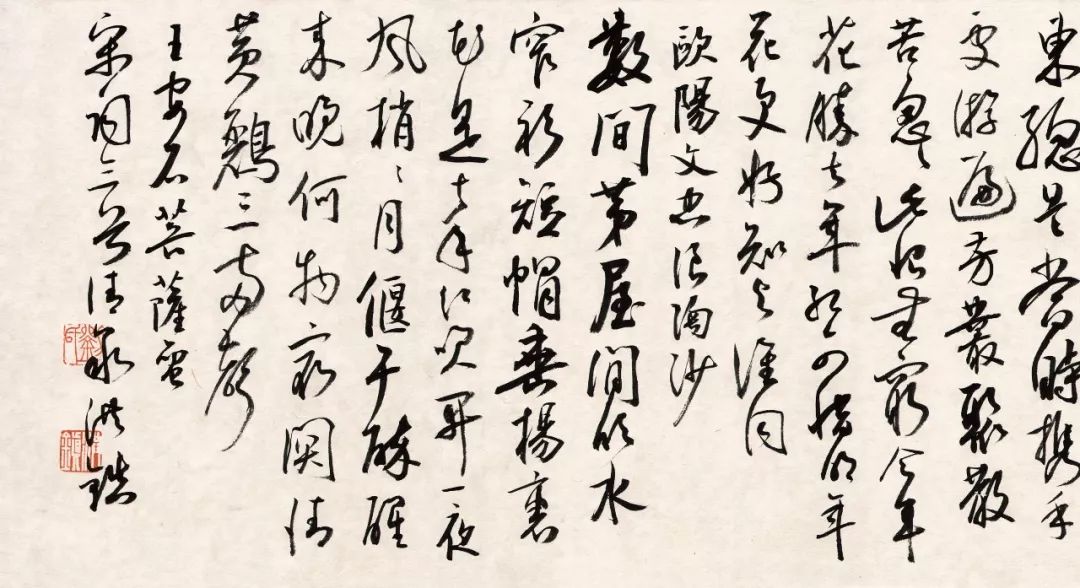 東總是當時攜手
處游遍芳叢聚散
苦怱〻此恨無窮今年
花勝去年紅可惜明年
花更好知與誰同
歐陽文忠浪淘沙
數間茅屋閒臨水
窄衫短帽垂楊裏
花是去年紅吹開一夜
風梢〻月偃午醉醒
來晚何物最關情
黃鸝三兩聲
王安石菩薩蠻
宋詞三首 洪鎮